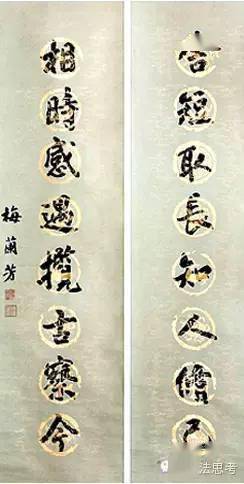 舍短取長知人
相時感遇攬古察今
梅蘭芳
法思考